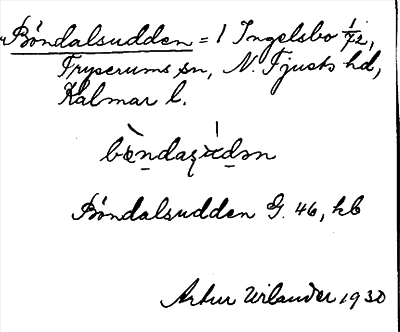 Böndalsudden = 1 Ingelsbo 1/72,
Fryserums sn, N. Tjusts hd,
Kalmar l.
Böndalsudden G. 46, hb
Artur Wilander 1930